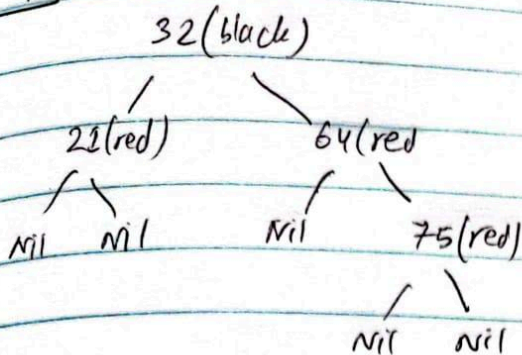 32(black)
21(red) 64(red
Nil Nil Nil 75(red)
Nil Nil